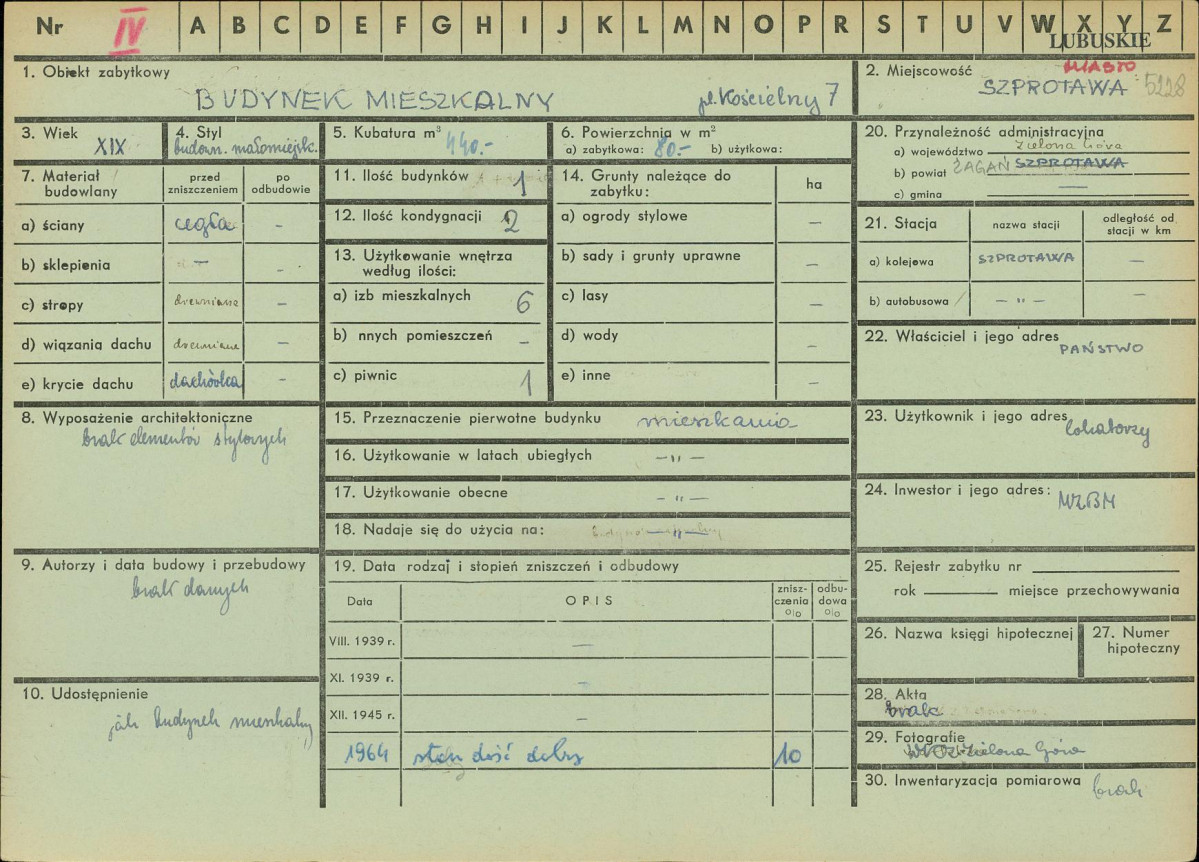 Nr IV A B C D E F G H I J K L M N O P R S T U V W X Y Z
LUBUSKIE
1. Obiekt zabytkowy
BUDYNEK MIESZKALNY pl. Kościelny 7
2. Miejscowość
MIASTO
SZPROTAWA 5228
3. Wiek
XIX
4. Styl
budown. małomiejsk.
5. Kubatura m³
440.-
6. Powierzchnia w m²
a) zabytkowa: 80.- b) użytkowa:
20. Przynależność administracyjna
a) województwo Zielona Góra
b) powiat ŻAGAŃ SZPROTAWA
c) gmina —
7. Materiał budowlany
przed zniszczeniem
po odbudowie
a) ściany cegła -
b) sklepienia - -
c) stropy drewniane -
d) wiązania dachu drewniane -
e) krycie dachu dachówka -
11. Ilość budynków 1
12. Ilość kondygnacji 2
13. Użytkowanie wnętrza według ilości:
a) izb mieszkalnych 6
b) nnych pomieszczeń -
c) piwnic 1
14. Grunty należące do zabytku:
ha
a) ogrody stylowe -
b) sady i grunty uprawne -
c) lasy -
d) wody -
e) inne -
21. Stacja
nazwa stacji
odległość od stacji w km
a) kolejowa SZPROTAWA —
b) autobusowa — „ — —
22. Właściciel i jego adres
PAŃSTWO
8. Wyposażenie architektoniczne
brak elementów stylowych
15. Przeznaczenie pierwotne budynku mieszkania
16. Użytkowanie w latach ubiegłych — „ —
17. Użytkowanie obecne — „ —
18. Nadaje się do użycia na: — „ —
23. Użytkownik i jego adres
lokatorzy
24. Inwestor i jego adres:
MZBM
9. Autorzy i data budowy i przebudowy
brak danych
19. Data rodzaj i stopień zniszczeń i odbudowy
Data
OPIS
znisz-
czenia
o/o
odbu-
dowa
o/o
VIII. 1939 r. —
XI. 1939 r. —
XII. 1945 r. —
1964 stan dość dobry 10
25. Rejestr zabytku nr
rok miejsce przechowywania
26. Nazwa księgi hipotecznej
27. Numer hipoteczny
10. Udostępnienie
jak budynek mieszkalny
28. Akta
brak
29. Fotografie
Zielona Góra
30. Inwentaryzacja pomiarowa brak